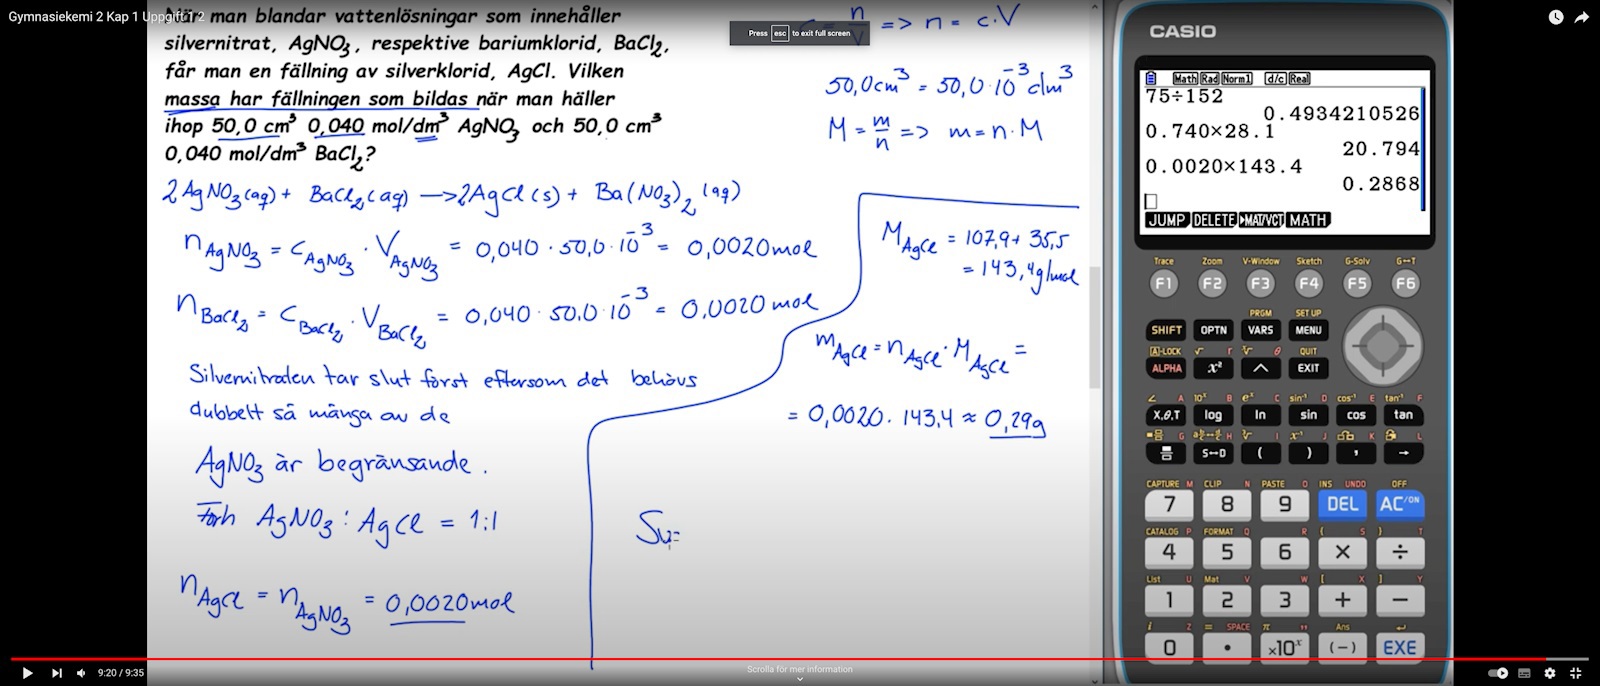 Gymnasiekemi 2 Kap 1 Uppgift 1 2
När man blandar vattenlösningar som innehåller
silvernitrat, AgNO₃, respektive bariumklorid, BaCl₂,
får man en fällning av silverklorid, AgCl. Vilken
massa har fällningen som bildas när man häller
ihop 50,0 cm³ 0,040 mol/dm³ AgNO₃ och 50,0 cm³
0,040 mol/dm³ BaCl₂?
Press esc to exit full screen
n/V => n = c.V
50,0cm³ = 50,0·10⁻³ dm³
M = m/n => m = n·M
2AgNO₃(aq) + BaCl₂(aq) → 2AgCl(s) + Ba(NO₃)₂ (aq)
n AgNO₃ = C AgNO₃ · V AgNO₃ = 0,040 · 50,0·10⁻³ = 0,0020mol
n BaCl₂ = C BaCl₂ · V BaCl₂ = 0,040 · 50,0·10⁻³ = 0,0020 mol
Silvernitraten tar slut först eftersom det behövs
dubbelt så många av de
AgNO₃ är begränsande.
Förh AgNO₃ : AgCl = 1:1
n AgCl = n AgNO₃ = 0,0020mol
M AgCl = 107,9 + 35,5
= 143,4g/mol
m AgCl = n AgCl · M AgCl =
= 0,0020 · 143,4 ≈ 0,29g
CASIO
Math Rad Norm1 d/c Real
75÷152
0.4934210526
0.740×28.1
20.794
0.0020×143.4
0.2868
JUMP DELETE ►MAT/VCT MATH
Trace Zoom V-Window Sketch G-Solv G↔T
F1 F2 F3 F4 F5 F6
PRGM SET UP
SHIFT OPTN VARS MENU
A-LOCK √ r ∛ θ QUIT
ALPHA x² ^ EXIT
∠ A 10ˣ B eˣ C sin⁻¹ D cos⁻¹ E tan⁻¹ F
X,θ,T log ln sin cos tan
G H I x⁻¹ J K L
S↔D ( ) , →
CAPTURE M CLIP N PASTE O INS UNDO OFF
7 8 9 DEL AC/ON
CATALOG P FORMAT Q R { S } T
4 5 6 × ÷
List U Mat V W [ X ] Y
1 2 3 + −
i Z = SPACE π " Ans ↵
0 • ×10ˣ (−) EXE
9:20 / 9:35
Scrolla för mer information